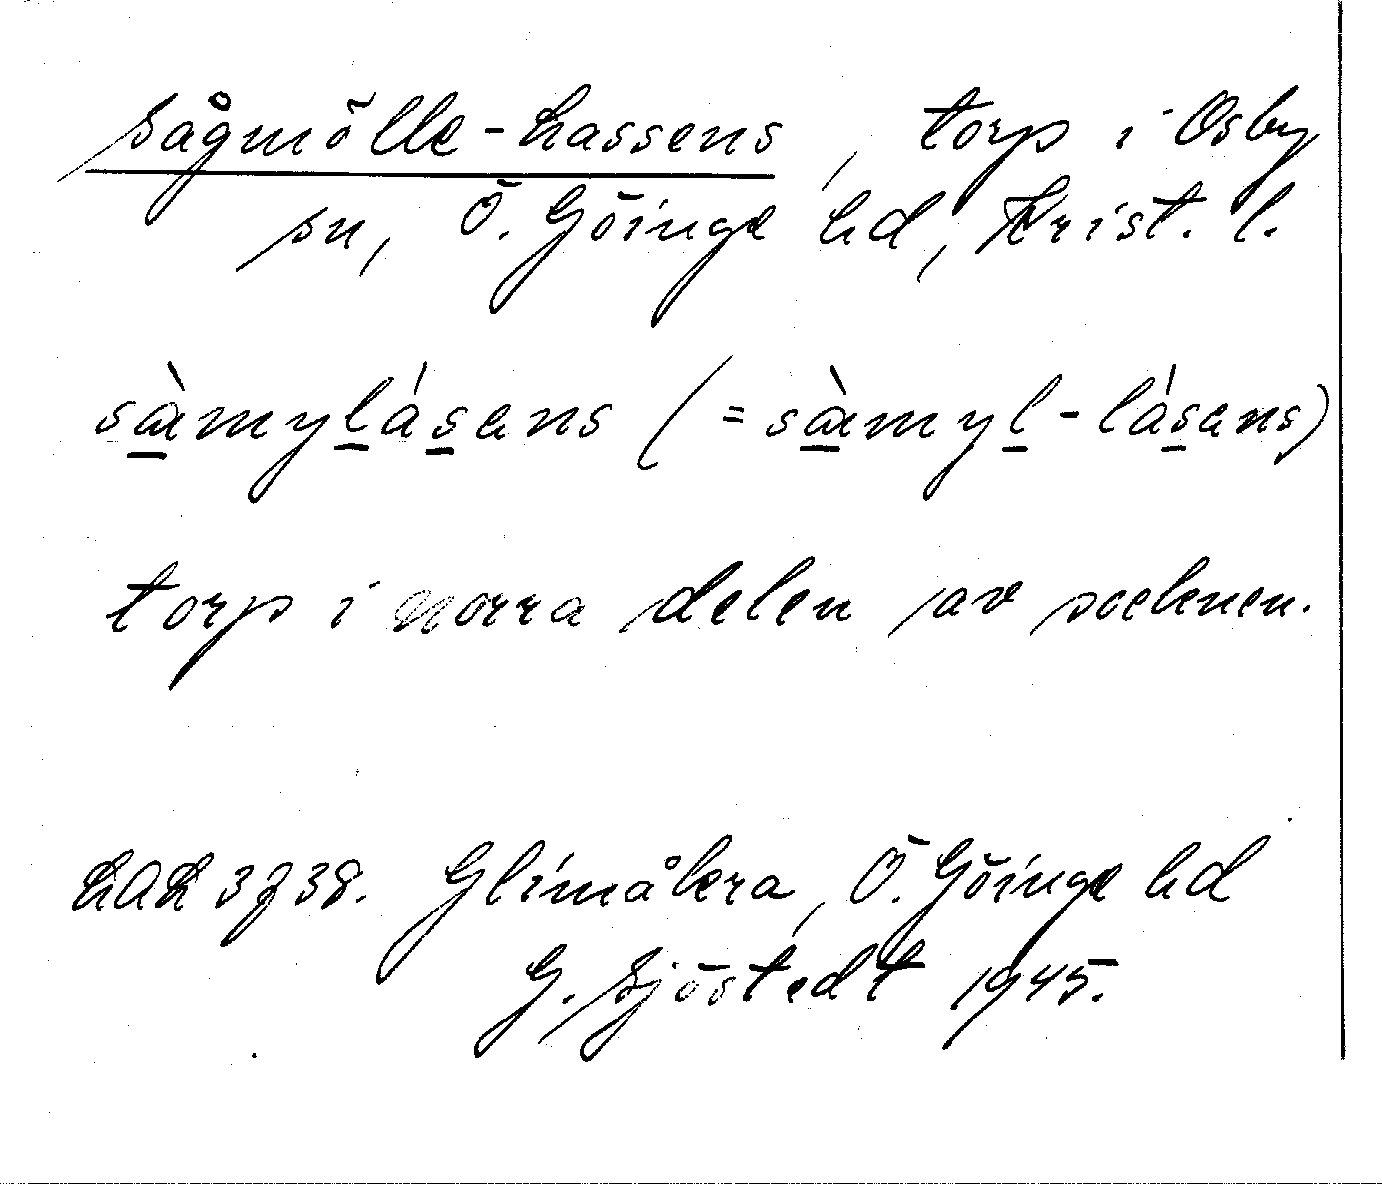 Sågmölle-Lassens, torp i Osby
sn, Ö. Göinge hd, Krist. l.
sàmylásens (=sàmyl-lásens)
torp i norra delen av socknen.
LAL 3738. Glimåkra, Ö. Göinge hd
G. Sjöstedt 1945.